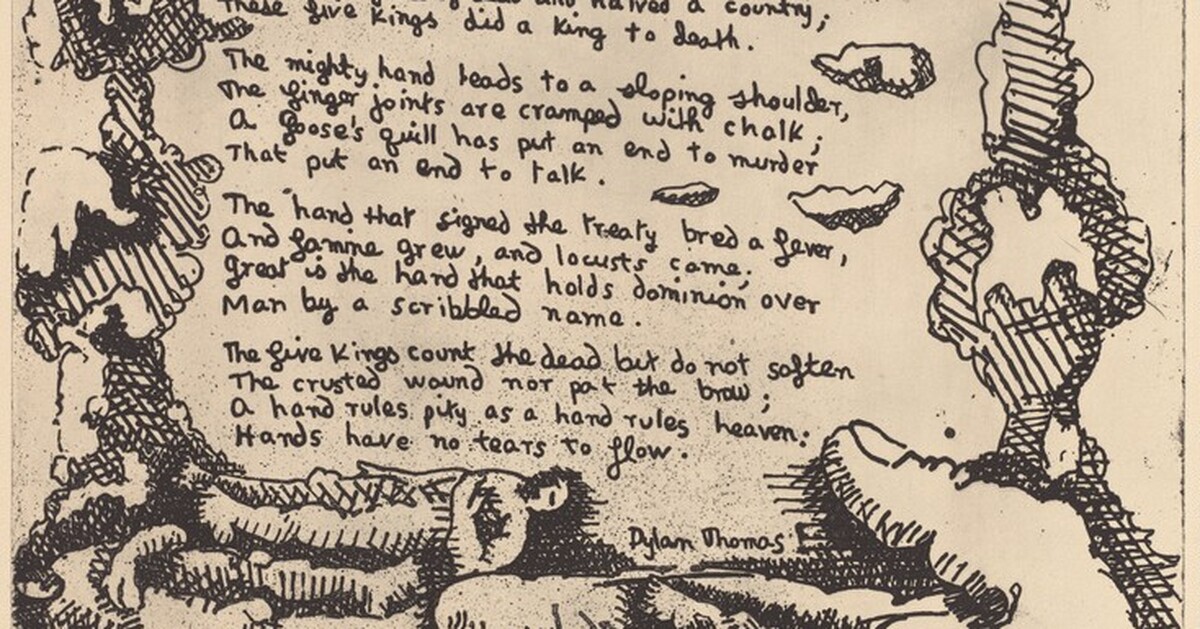 and halved a country;
These five kings did a king to death.
The mighty hand leads to a sloping shoulder,
The finger joints are cramped with chalk;
A goose's quill has put an end to murder
That put an end to talk.
The hand that signed the treaty bred a fever,
And famine grew, and locusts came;
Great is the hand that holds dominion over
Man by a scribbled name.
The five kings count the dead but do not soften
The crusted wound nor pat the brow;
A hand rules pity as a hand rules heaven;
Hands have no tears to flow.
Dylan Thomas